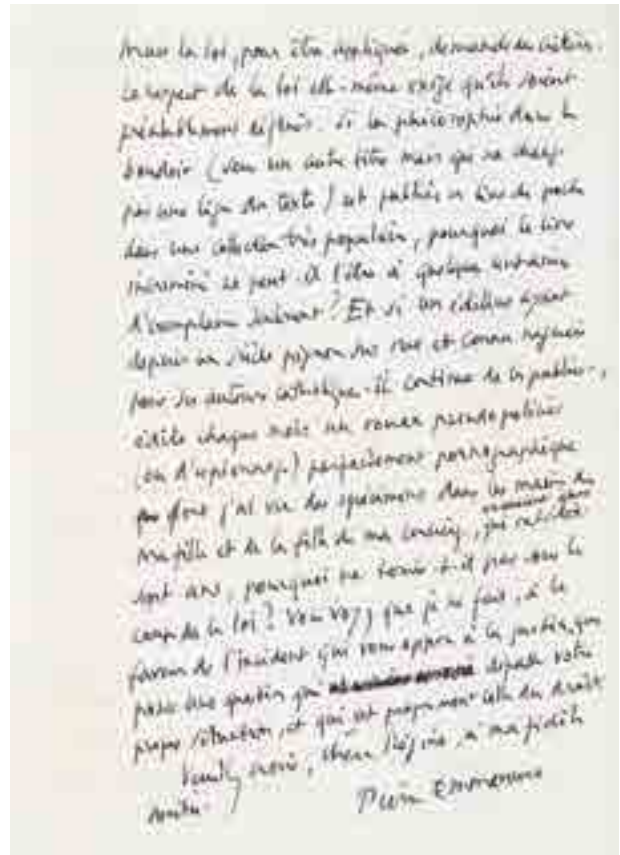 Mais la loi, pour être appliquée, demande des critères.
Le respect de la loi elle-même exige qu'ils soient
préalablement définis. Si la philosophie dans le
boudoir (sous un autre titre mais qui ne change
pas une ligne du texte) est publiée en livre de poche
dans une collection très populaire, pourquoi le livre
incriminé ne peut-il l'être à quelque centaine
d'exemplaires seulement ? Et si un éditeur ayant
depuis un siècle pignon sur rue et connu
pour ses auteurs catholiques - il continue de les publier -,
édite chaque mois un roman pseudo policier
(ou d'espionnage) parfaitement pornographique
dont j'ai vu des specimens dans les mains de
ma fille et de la fille de ma concierge, qui
sept ans, pourquoi ne tombe-t-il pas sous le
coup de la loi ? Vous voyez que je ne fais, à la
faveur de l'incident qui vous oppose à la justice, que
poser une question qui dépasse votre
propre situation, et qui est proprement celle du droit.
Veuillez croire, chère Régine, à ma fidèle
amitié.
Pierre Emmanuel